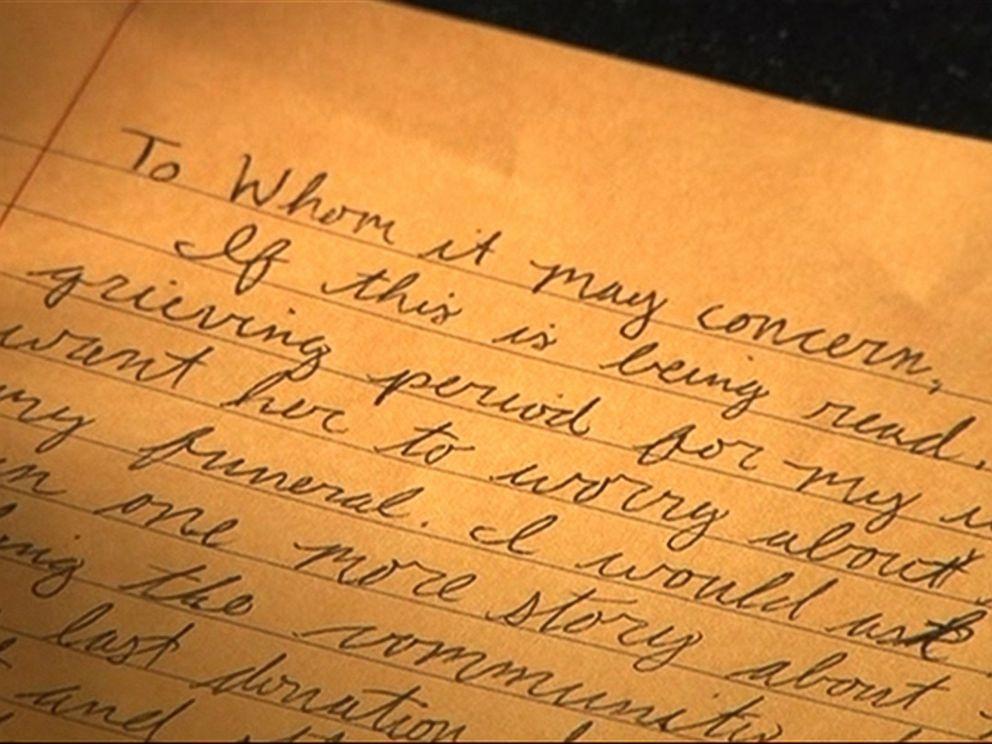 To Whom it may concern,
If this is being read,
grieving period for my
want her to worry about
my funeral. I would ask
one more story about
the community
last donation
and